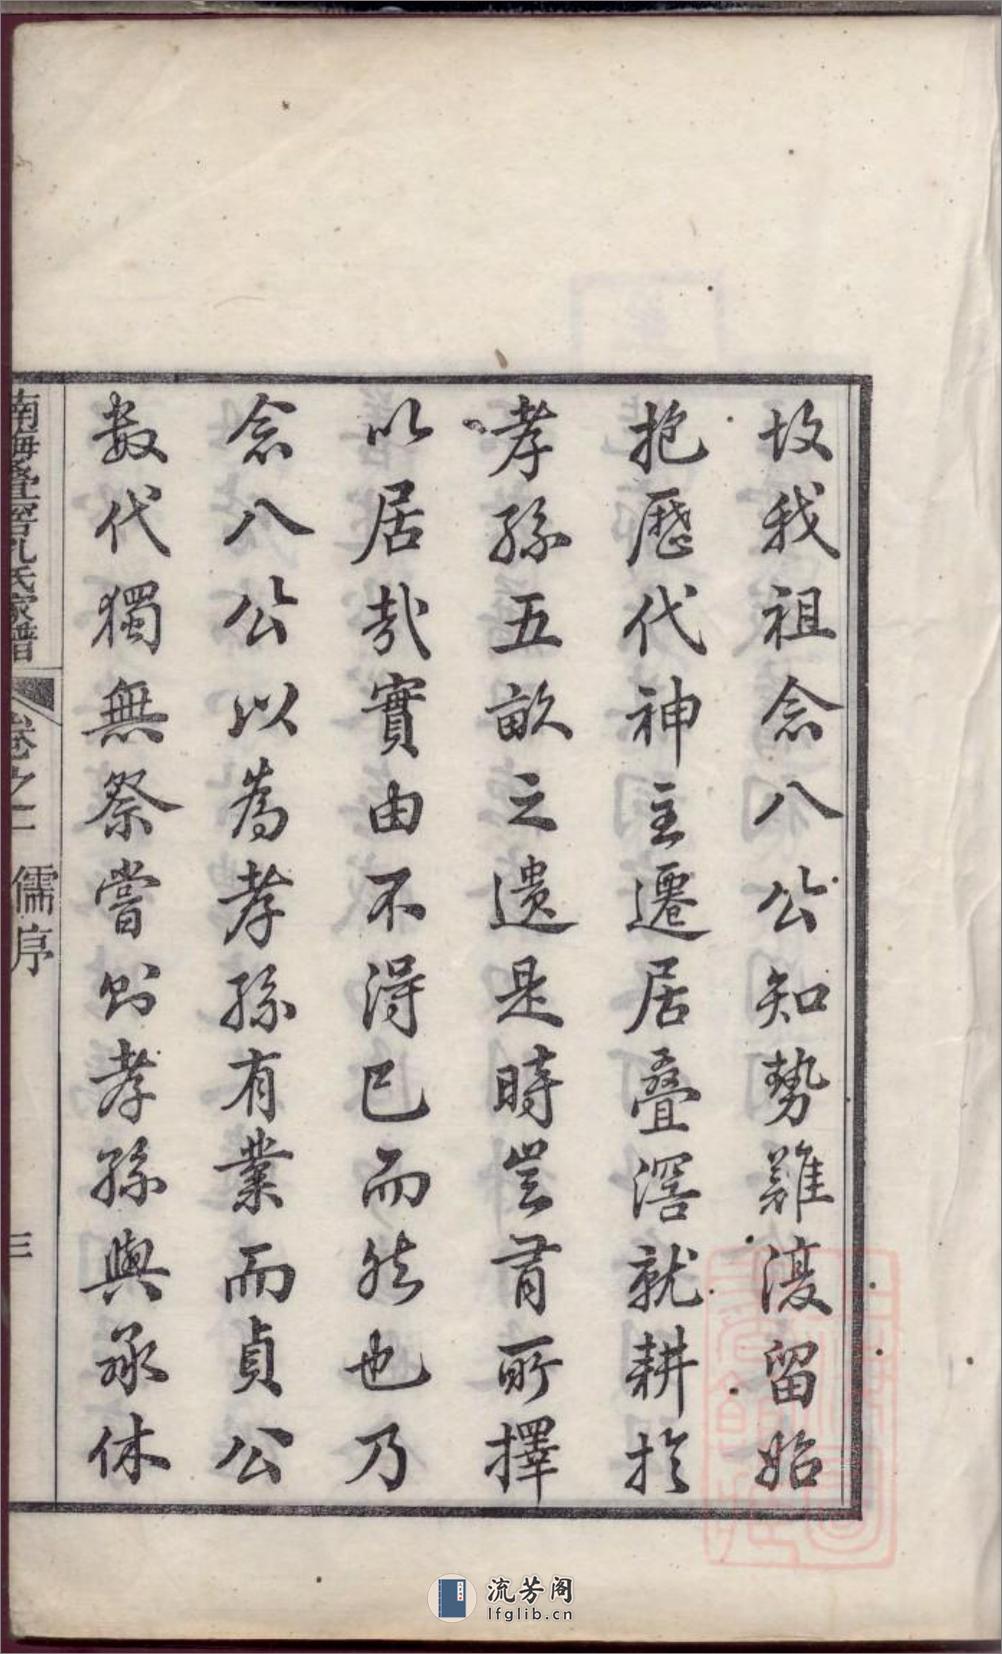 故我祖念八公知勢難濅留始
抱歷代神主遷居疊滘就耕於
孝孫五畝之遺是時豈有所擇
以居哉實由不得已而然也乃
念八公以為孝孫有業而貞公
数代獨無祭嘗則孝孫與承休
南海疊滘孔氏家譜 卷之一 儒序 三
流芳阁
lfglib.cn